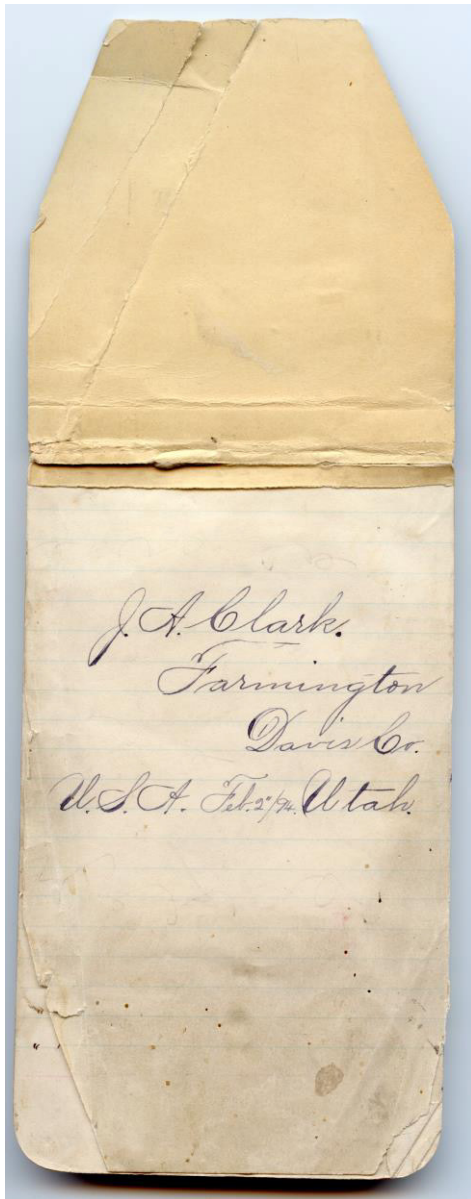 J. A. Clark.
Farmington
Davis Co.
U. S. A. Feb. 2"/94. Utah.